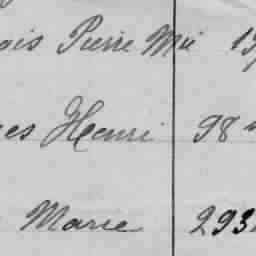 ois Pierre Mie 13
es Henri 98
Marie 293